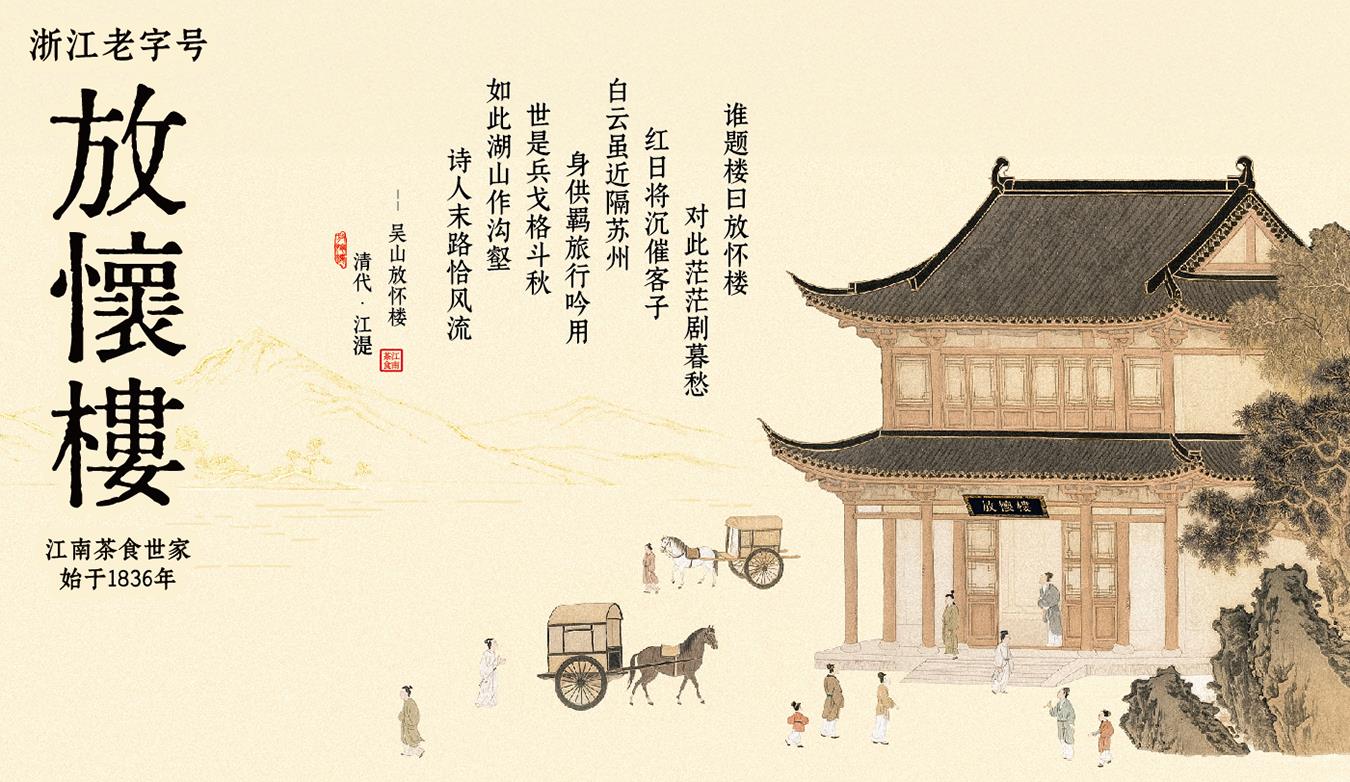 浙江老字号
放懷樓
江南茶食世家
始于1836年
谁题楼曰放怀楼
对此茫茫剧暮愁
红日将沉催客子
白云虽近隔苏州
身供羁旅行吟用
世是兵戈格斗秋
如此湖山作沟壑
诗人末路恰风流
——吴山放怀楼
清代·江湜
江南茶食
放懷樓